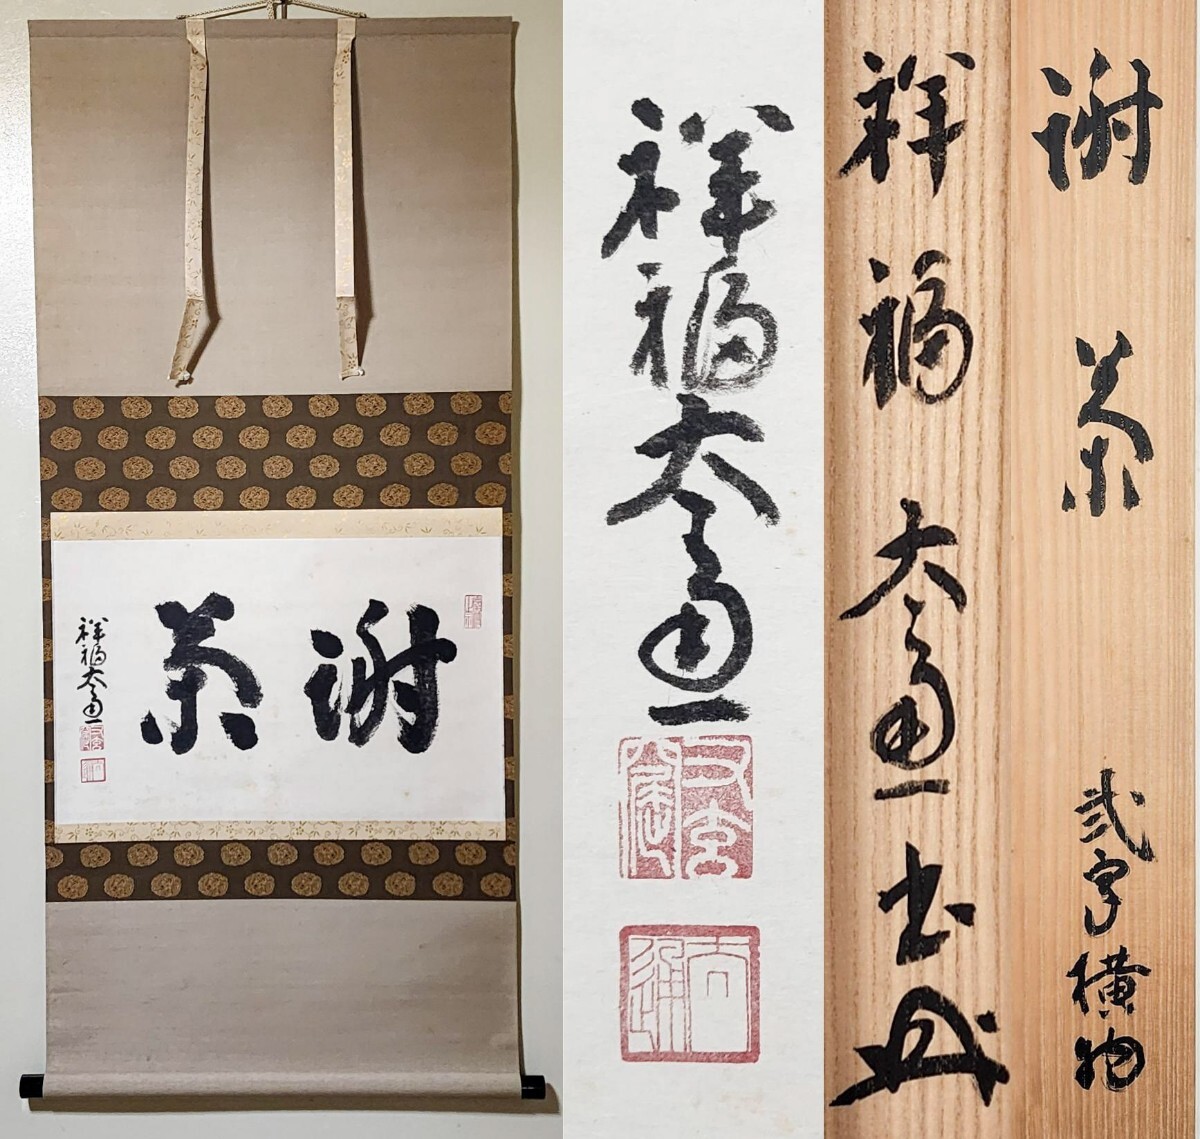 謝茶
祥福太通
祥福太通
謝茶 弐字横物
祥福太通書